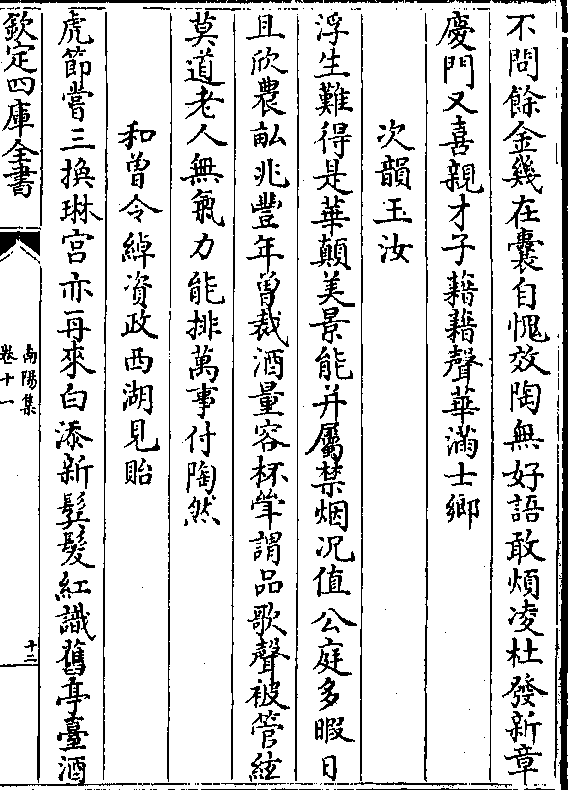 不問餘金幾在囊自愧效陶無好語敢煩凌杜發新章
慶門又喜親才子籍籍聲華滿士鄉
次韻玉汝
浮生難得是華顛美景能并屬禁烟况值公庭多暇日
且欣農畝兆豐年曾裁酒量容杯斚謂品歌聲被管絃
莫道老人無氣力能排萬事付陶然
和曾令綽資政西湖見貽
虎節嘗三換琳宫亦再來白添新髩髮紅識舊亭臺酒
欽定四庫全書
南陽集
卷十一
十二